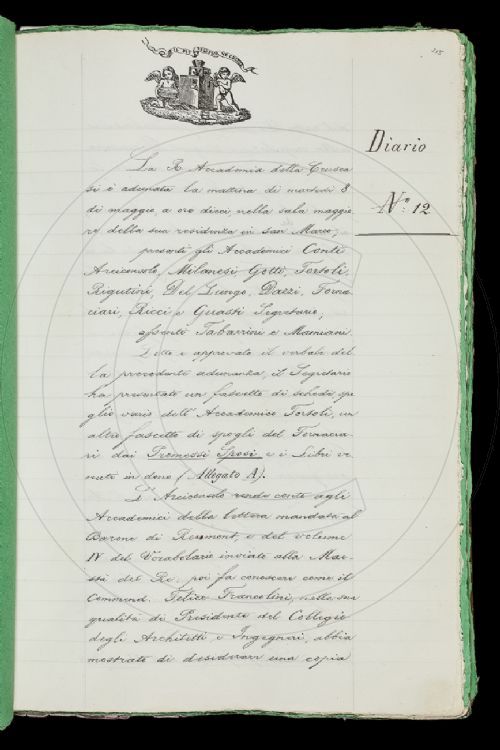 IL PIÙ BEL FIOR NE COGLIE
215
Diario
N.º 12
La R. Accademia della Crusca
si è adunata la mattina di martedì 8
di maggio, a ore dieci, nella sala maggio
re della sua residenza in San Marco;
presenti gli Accademici Conti
Arciconsolo, Milanesi Gotti, Tortoli,
Rigutini, Del Lungo, Dazzi, Torna
ciari, Ricci e Guasti Segretario;
assenti Tabarrini e Mamiani.
Letto e approvato il verbale del
la precedente adunanza, il Segretario
ha presentato un fascetto di schede, spo
glio vario dell'Accademico Tortoli, un
altro fascetto di spogli del Fornacia
ri dai Promessi Sposi e i Libri ve
nuti in dono (Allegato A).
L'Arciconsolo rende conto agli
Accademici della lettera mandata al
Barone di Reumont, e del volume
IV del Vocabolario inviato alla Mae
stà del Re; poi fa conoscere come il
Commend. Felice Francolini, nella sua
qualità di Presidente del Collegio
degli Architetti e Ingegneri, abbia
mostrato di desiderare una copia